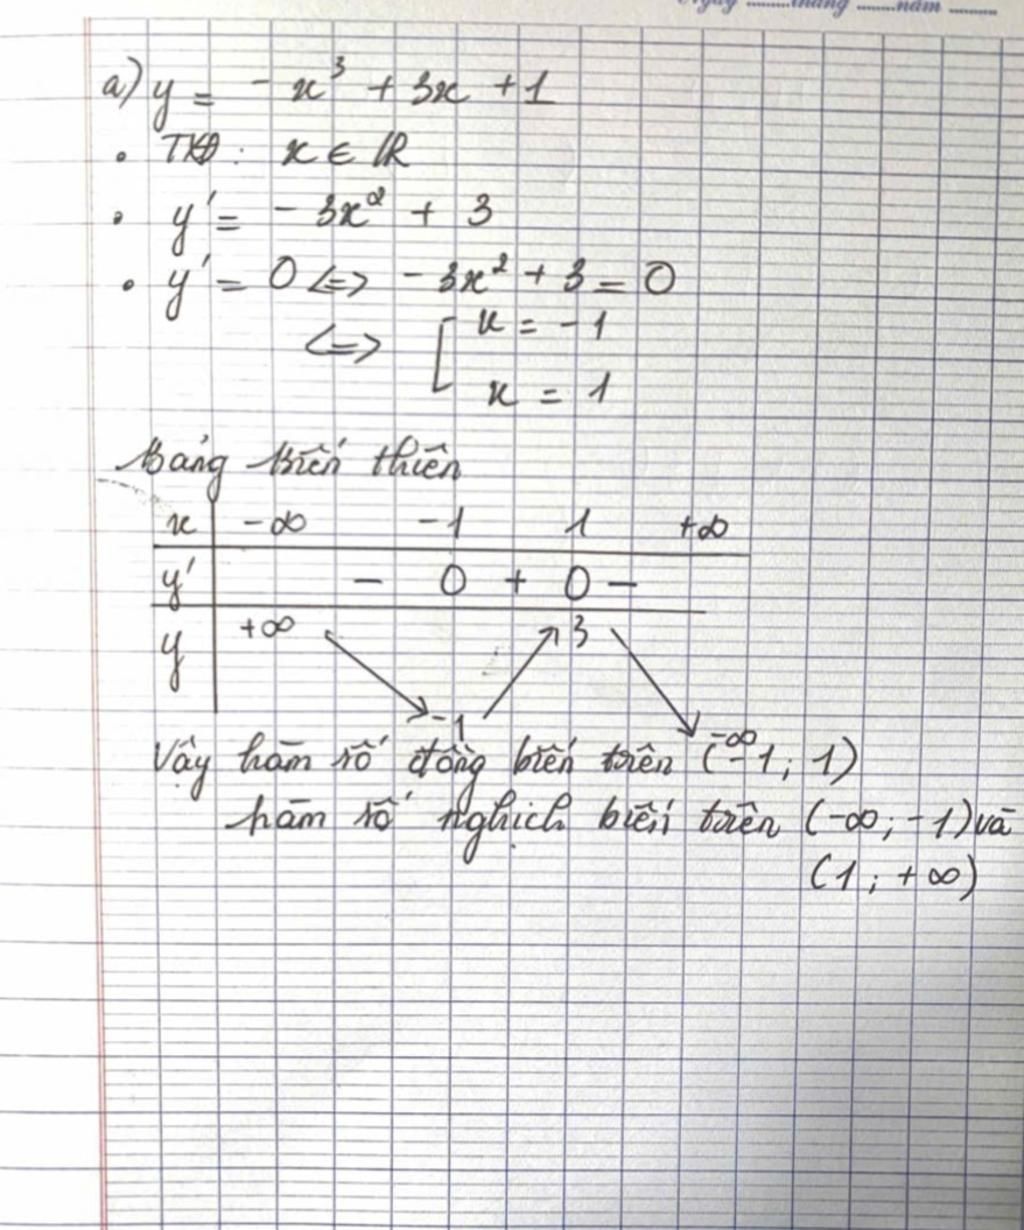 Ngày ........tháng ........năm .........
a) y = -x³ + 3x + 1
• TXĐ: x ∈ ℝ
• y' = -3x² + 3
• y' = 0 <=> -3x² + 3 = 0
<=> [ x = -1
x = 1
Bảng biến thiên
x -∞ -1 1 +∞
y' - 0 + 0 -
y +∞ 3
-1 -∞
Vậy hàm số đồng biến trên (-1; 1)
hàm số nghịch biến trên (-∞; -1) và
(1; +∞)